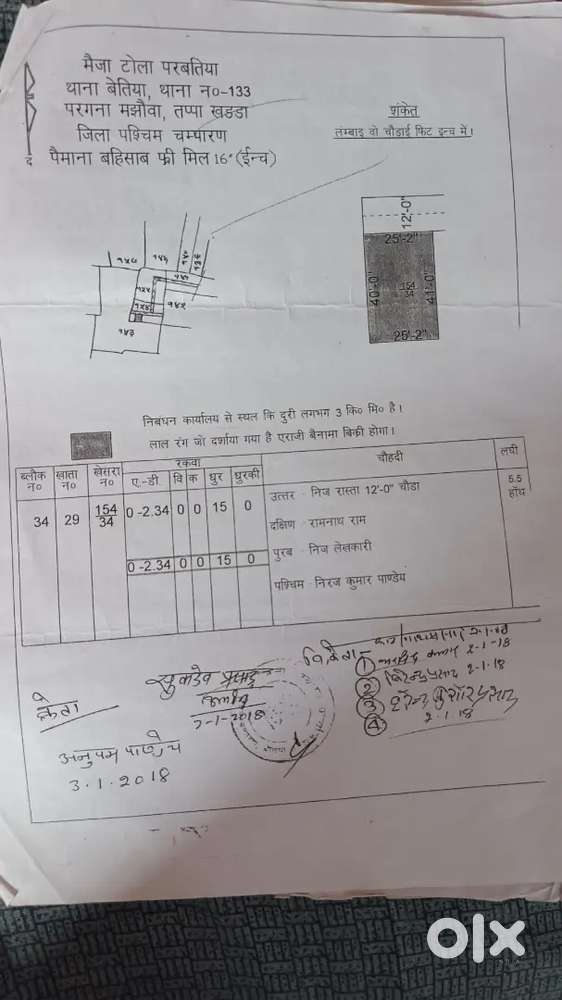 मैजा टोला परबतिया
थाना बेतिया, थाना न०-133
परगना मझौवा, तप्पा खडडा
जिला पश्चिम चम्पारण
पैमाना बहिसाब फ्री मिल 16"(ईन्च)
द
शंकेत
लम्बाइ वो चौडाई फिट इन्च में।
12'-0"
25'-2"
40'-0"
154
34
41'-0"
25'-2"
१५३
निबंधन कार्यालय से स्थल कि दुरी लगभग 3 कि० मि० है।
लाल रंग जो दर्शाया गया है एराजी बैनामा बिक्री होगा।
ब्लौक न० खाता न० खेसरा न० रकवा ए.-डी वि क धुर धुरकी चौहदी लघी
34 29 154/34 0-2.34 0 0 15 0 उत्तर - निज रास्ता 12'-0" चौडा 5.5 हाॅथ
दक्षिण - रामनाथ राम
0-2.34 0 0 15 0 पुरब - निज लेखकारी
पश्चिम - निरज कुमार पाण्डेय
क्रेता
अनुपम पाण्डेय
3.1.2018
सुकदेव प्रसाद
2-1-2018
विक्रेता-
① 2-1-18
② विरेन्द्र प्रसाद 2-1-18
③
④ 2.1.18
olx